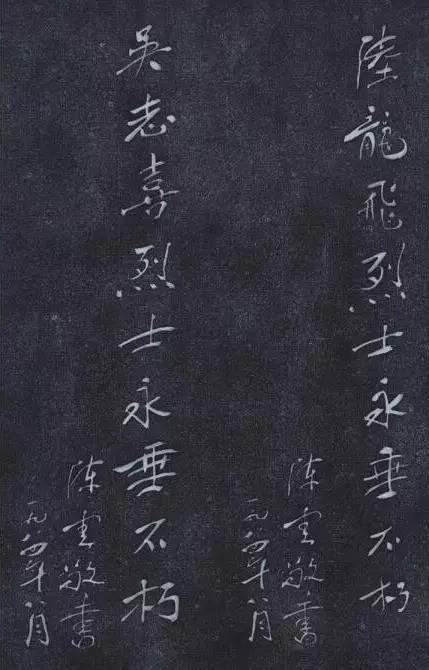 陸龍飛烈士永垂不朽
陈雲敬書
一九八四年一月
吴志喜烈士永垂不朽
陈雲敬書
一九八四年一月